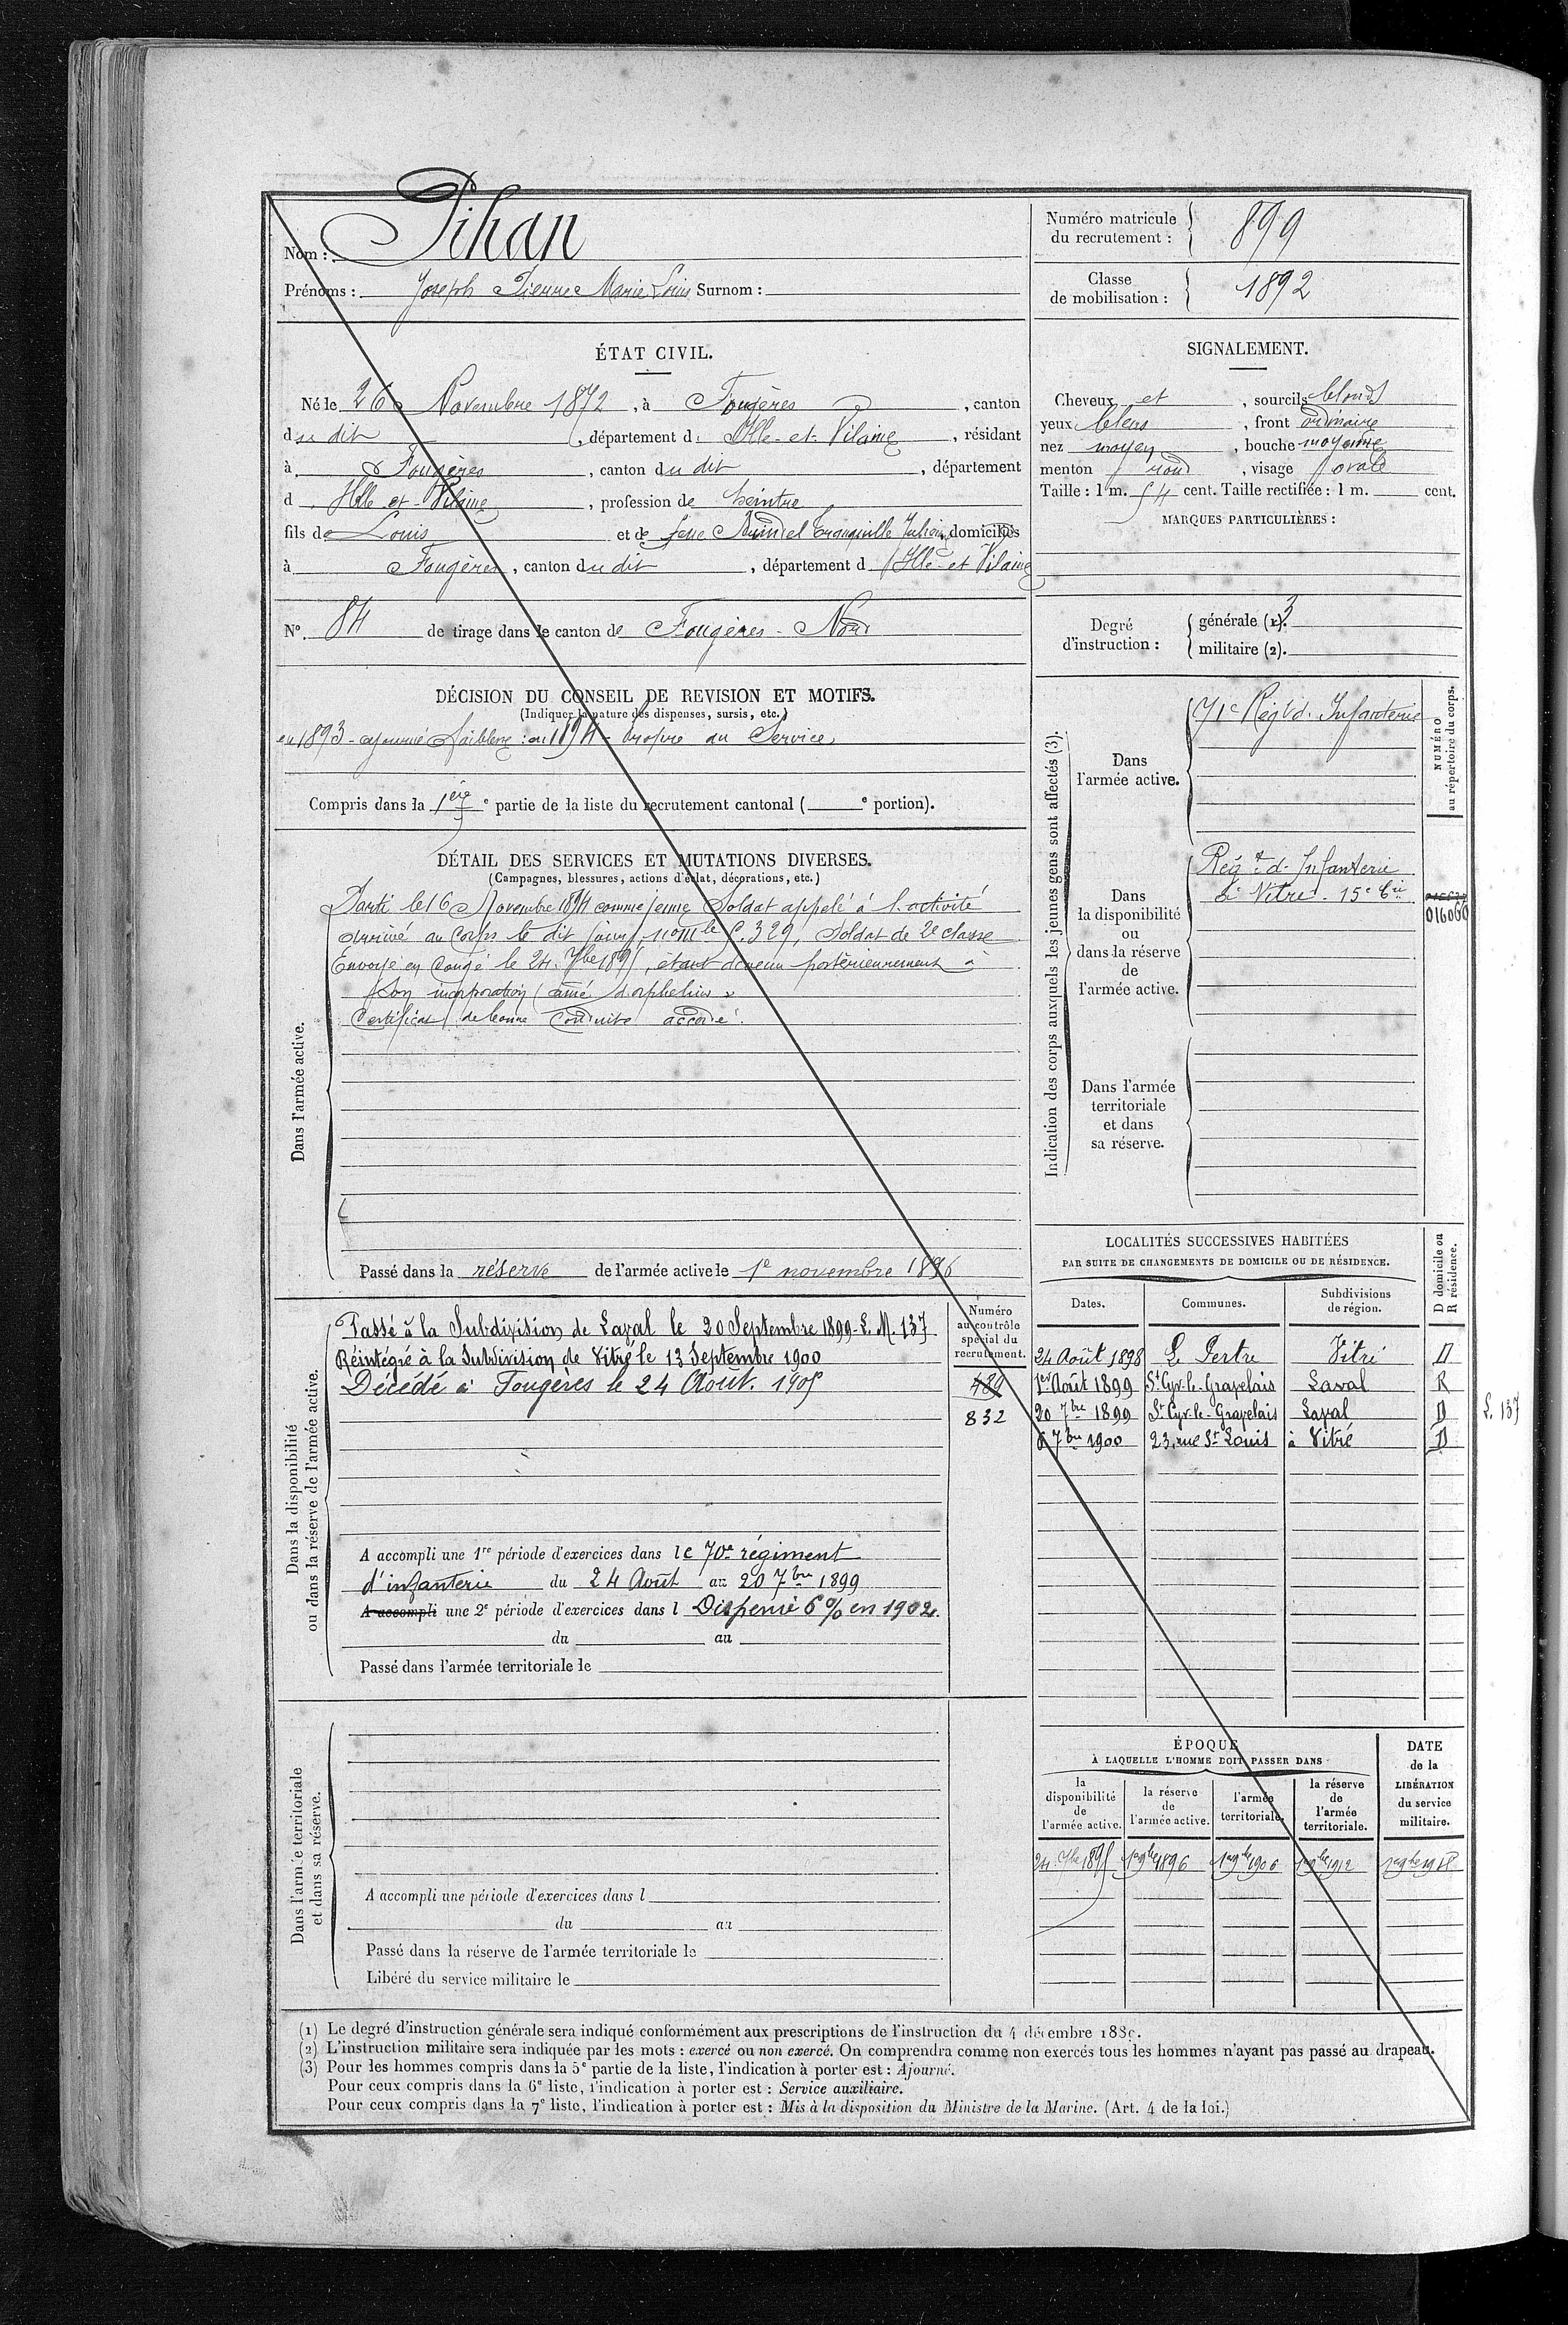 Nom : Pihan
Prénoms : Joseph Pierre Marie Louis Surnom :
Numéro matricule du recrutement : 899
Classe de mobilisation : 1892
ÉTAT CIVIL.
Né le 26 Novembre 1872, à Fougères, canton
du dit, département d' Ille-et-Vilaine, résidant
à Fougères, canton du dit, département
d Ille-et-Vilaine, profession de peintre
fils de Louis et de feue Tranquille Julienne, domiciliés
à Fougères, canton du dit, département d Ille-et-Vilaine
N° 84 de tirage dans le canton de Fougères - Nord
SIGNALEMENT.
Cheveux et, sourcils blonds
yeux bleus, front ordinaire
nez moyen, bouche moyenne
menton rond, visage ovale
Taille : 1 m. 54 cent. Taille rectifiée : 1 m. cent.
MARQUES PARTICULIÈRES :
Degré d'instruction :
générale (1). 3
militaire (2).
DÉCISION DU CONSEIL DE REVISION ET MOTIFS.
(Indiquer la nature des dispenses, sursis, etc.)
en 1893 - ajourné faiblesse : en 1894 - propre au Service
Compris dans la 1ère e partie de la liste du recrutement cantonal ( e portion).
DÉTAIL DES SERVICES ET MUTATIONS DIVERSES.
(Campagnes, blessures, actions d'éclat, décorations, etc.)
Dans l'armée active.
Parti le 16 Novembre 1894 comme jeune Soldat appelé à l'activité
Arrivé au Corps le dit jour, 329, Soldat de 2e classe
Envoyé en Congé le 24 7bre 1895, étant devenu postérieurement à
son incorporation aîné d'orphelins
Certificat de bonne Conduite accordé.
Passé dans la réserve de l'armée active le 1e novembre 1896
Indication des corps auxquels les jeunes gens sont affectés (3).
NUMÉRO au répertoire du corps.
Dans l'armée active.
71e Régt d'Infanterie
Dans la disponibilité ou dans la réserve de l'armée active.
Régt d'Infanterie
de Vitré - 15e Cie
016060
Dans l'armée territoriale et dans sa réserve.
Dans la disponibilité ou dans la réserve de l'armée active.
Numéro au contrôle spécial du recrutement.
Passé à la Subdivision de Laval le 20 Septembre 1899 - L. M. 137
Réintégré à la Subdivision de Vitré le 13 Septembre 1900
Décédé à Fougères le 24 Août 1905
489
832
A accompli une 1re période d'exercices dans le 70e régiment
d'infanterie du 24 Août au 20 7bre 1899
A accompli une 2e période d'exercices dans l Dispensé 6 % en 1902.
du au
Passé dans l'armée territoriale le
LOCALITÉS SUCCESSIVES HABITÉES
PAR SUITE DE CHANGEMENTS DE DOMICILE OU DE RÉSIDENCE.
D domicile ou R résidence.
Dates. Communes. Subdivisions de région.
24 Août 1898 Le Pertre Vitré D
1er Août 1899 St Cyr-le-Gravelais Laval R
20 7bre 1899 St Cyr-le-Gravelais Laval D L. 137
6 7bre 1900 23, rue St Louis à Vitré D
Dans l'armée territoriale et dans sa réserve.
A accompli une période d'exercices dans l
du au
Passé dans la réserve de l'armée territoriale le
Libéré du service militaire le
ÉPOQUE
À LAQUELLE L'HOMME DOIT PASSER DANS
la disponibilité de l'armée active.
la réserve de l'armée active.
l'armée territoriale.
la réserve de l'armée territoriale.
DATE de la LIBÉRATION du service militaire.
24 7bre 1895 1er 9bre 1896 1er 9bre 1906 1er 9bre 1912
(1) Le degré d'instruction générale sera indiqué conformément aux prescriptions de l'instruction du 4 décembre 1889.
(2) L'instruction militaire sera indiquée par les mots : exercé ou non exercé. On comprendra comme non exercés tous les hommes n'ayant pas passé au drapeau.
(3) Pour les hommes compris dans la 5e partie de la liste, l'indication à porter est : Ajourné.
Pour ceux compris dans la 6e liste, l'indication à porter est : Service auxiliaire.
Pour ceux compris dans la 7e liste, l'indication à porter est : Mis à la disposition du Ministre de la Marine. (Art. 4 de la loi.)